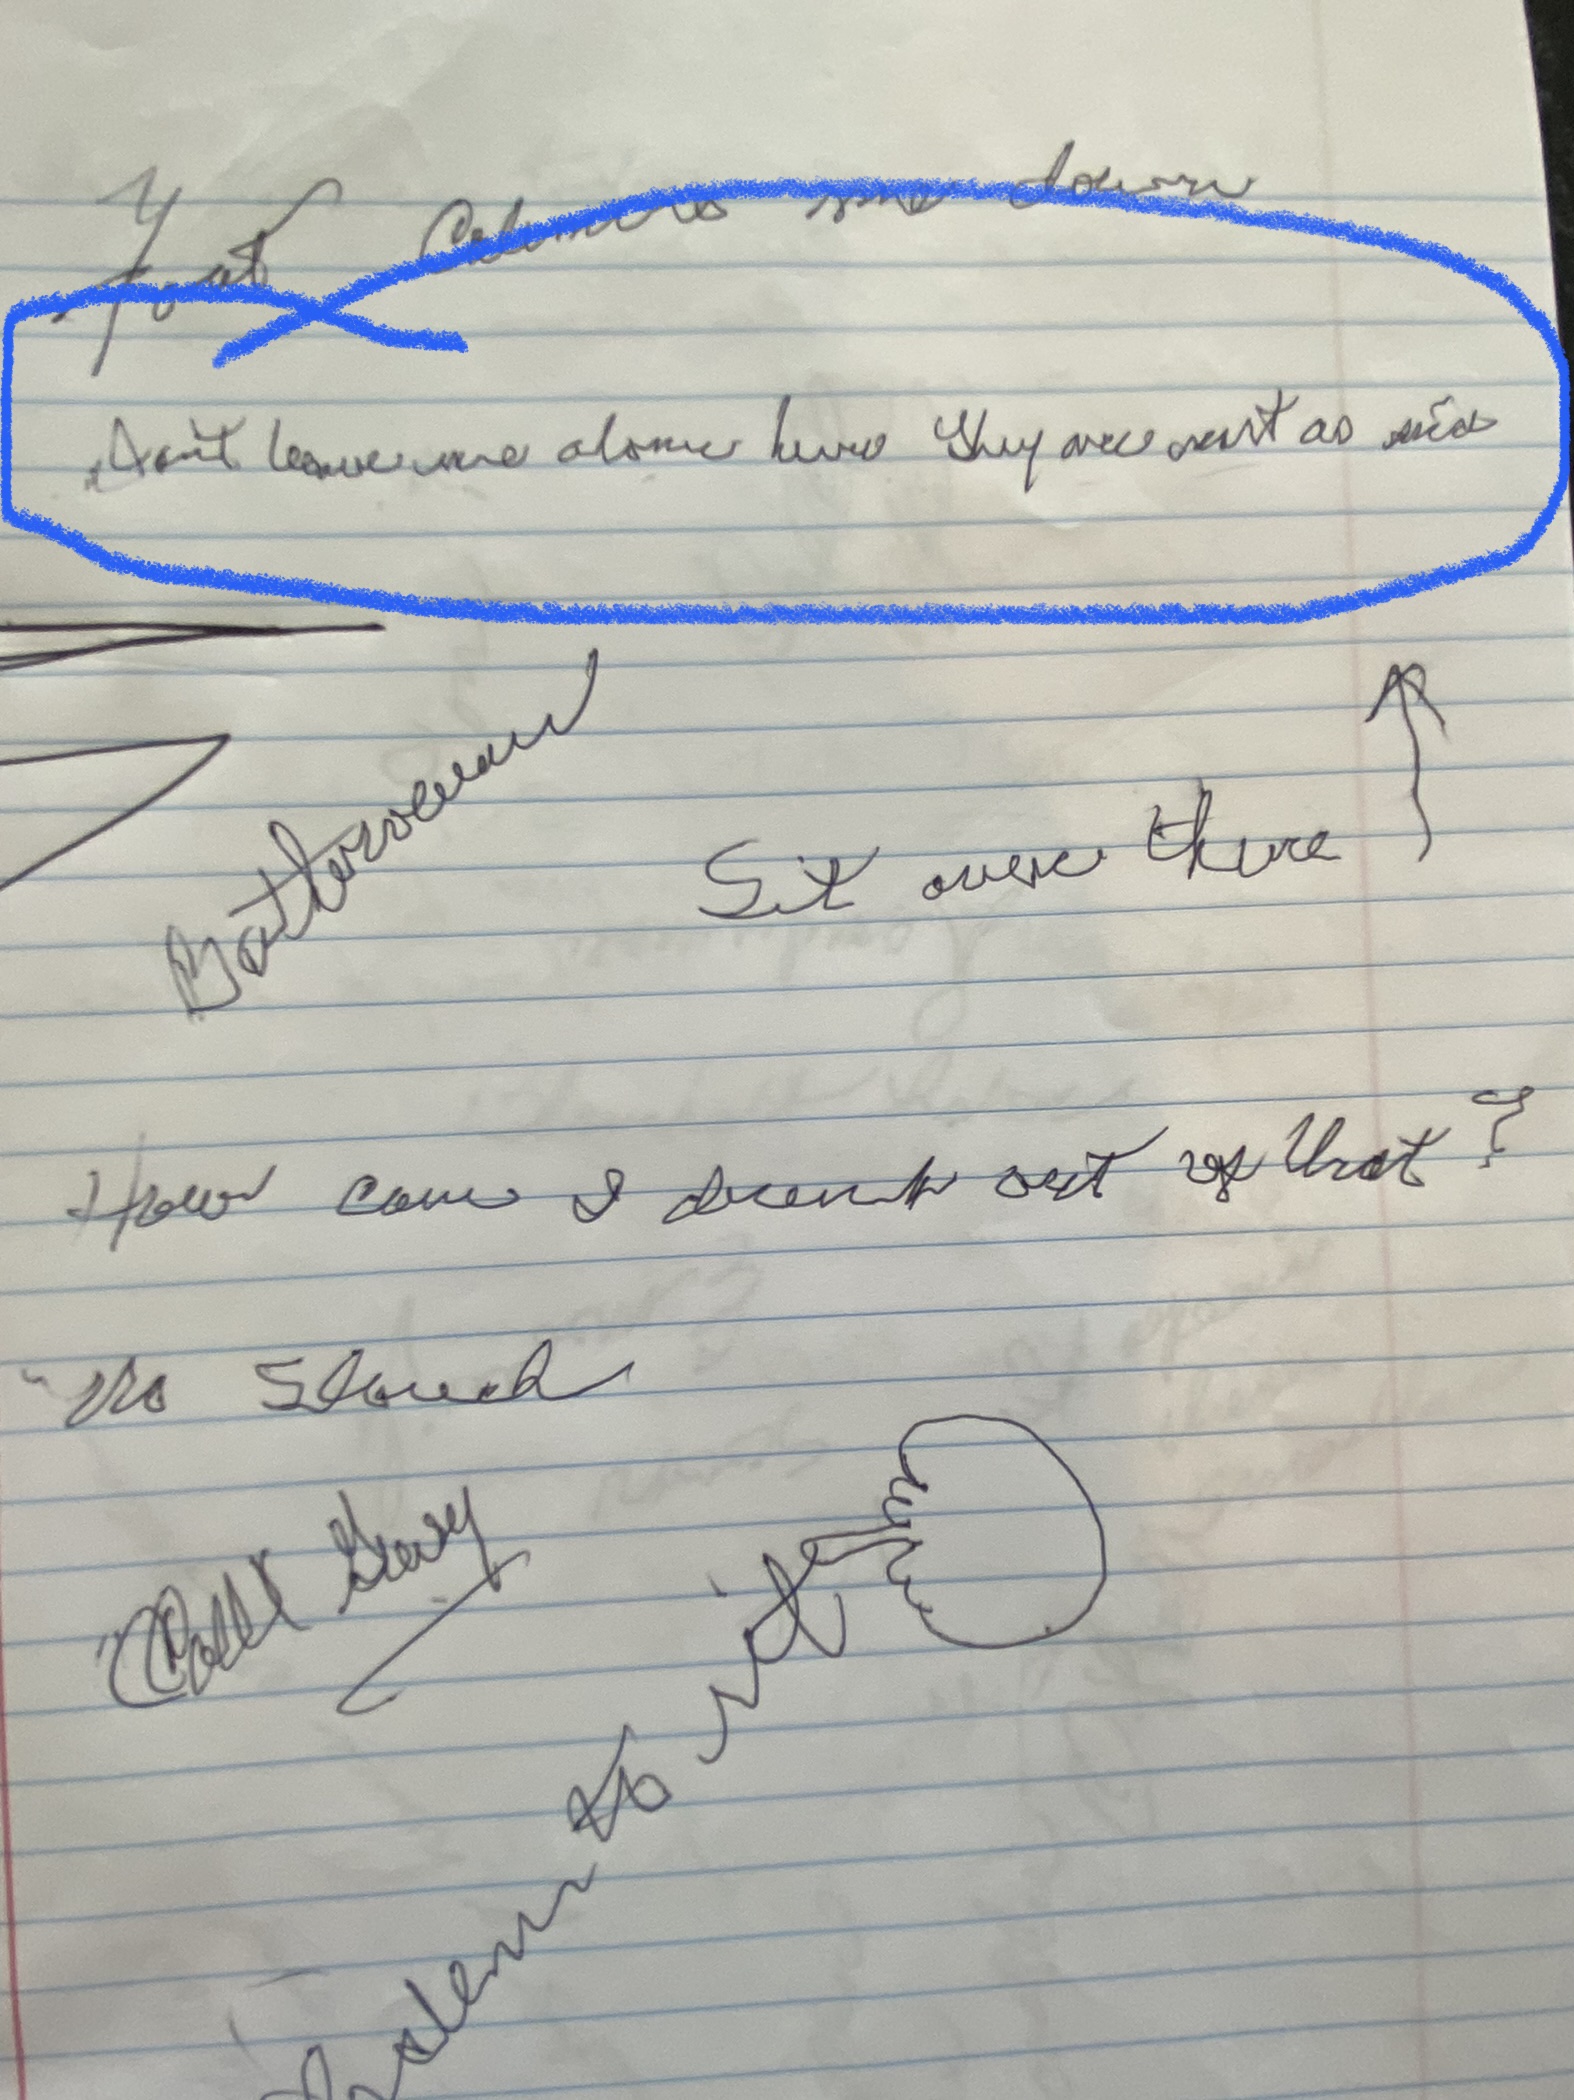 Foot Calms me down
Don't leave me alone here They are not as nice
Bathroom
Sit over there
How come I drink out of that?
No
Call Gary
to it